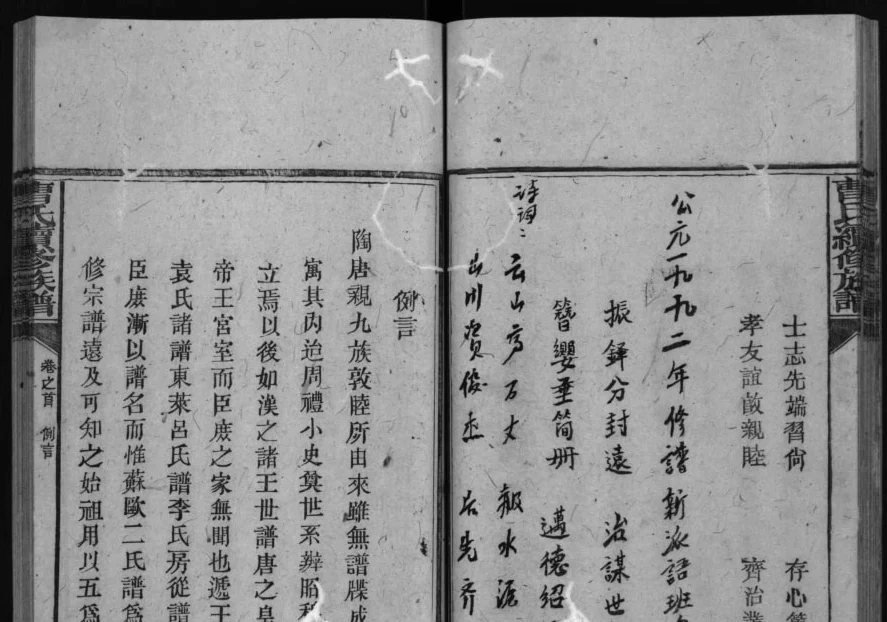 曹氏續修族譜
士志先端習尙
存心
孝友誼敵親睦
齊治
公元一九九二年修譜新派語班
振鐸分封遠
治謀世
簪纓垂简册
邁德紹
诗词：云山高万丈
水
山川資俊杰
后先齐
例言
陶唐親九族敦睦所由來雖無譜牒成
寓其內迨周禮小史奠世系辨昭穆
立焉以後如漢之諸王世譜唐之皇
帝王宮室而臣庶之家無聞也遞王
袁氏諸譜東萊呂氏譜李氏房從譜
臣庶漸以譜名而惟蘇歐二氏譜爲
修宗譜遠及可知之始祖用以五爲
曹氏續修族譜
卷之首 例言